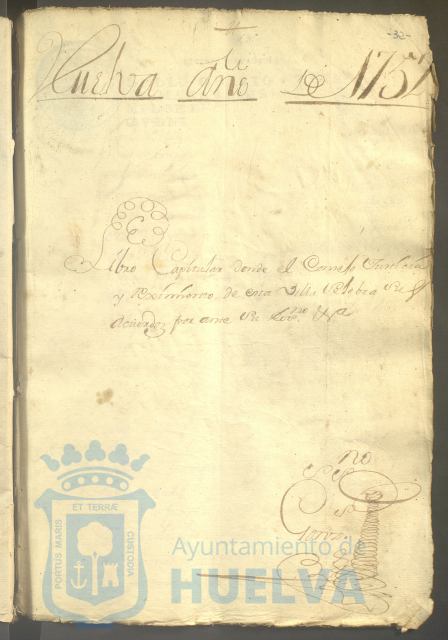 -32-
Huelva Año de 1757
Libro Capitular donde el Consejo Justicia
y Reximiento de esta Villa Selebra Sus
Acuerdos por ante Su Ssno.
no
ET TERRÆ
PORTUS MARIS
CUSTODIA
Ayuntamiento de
HUELVA